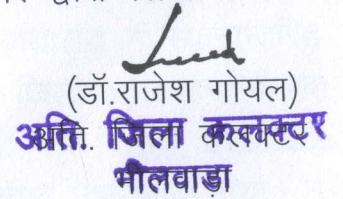 (डॉ.राजेश गोयल)
अति. जिला कलक्टर
भीलवाड़ा